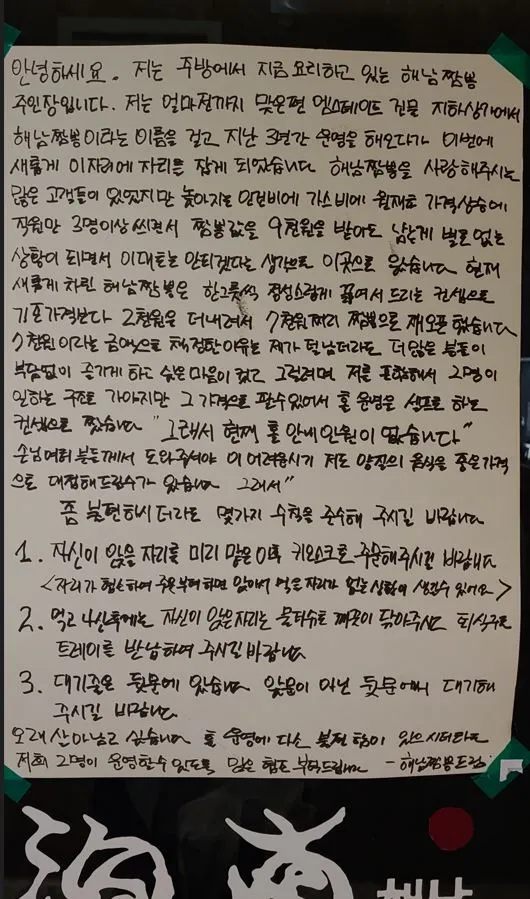 안녕하세요. 저는 주방에서 지금 요리하고 있는 해남짬뽕
주인장입니다. 저는 얼마전까지 맞은편 엠스테이트 건물 지하상가에서
해남짬뽕이라는 이름을 걸고 지난 3년간 운영을 해오다가 이번에
새롭게 이자리에 자리를 잡게 되었습니다 해남짬뽕을 사랑해주시는
많은 고객들이 있었지만 높아지는 인건비에 가스비에 원재료 가격상승에
직원만 3명이상 쓰면서 짬뽕값을 9천원을 받아도 남는게 별로 없는
상황이 되면서 이대로는 안되겠다는 생각으로 이곳으로 왔습니다 현재
새롭게 차린 해남짬뽕은 한그릇씩 정성스럽게 끓여서 드리는 컨셉으로
기존가격보다 2천원을 더내려서 7천원짜리 짬뽕으로 재오픈 했습니다
7천원이라는 금액으로 책정한 이유는 제가 덜 남더라도 더 많은 분들이
부담없이 즐기게 하고 싶은 마음이 컸고 그럴려며 저를 포함해서 2명이
일하는 구조로 가야지만 그 가격으로 팔수 있어서 홀 운영은 셀프로 하는
컨셉으로 짰습니다 "그래서 현재 홀 안내 인원이 없습니다"
손님여러분들께서 도와주셔야 이 어려운시기 저도 양질의 음식을 좋은가격
으로 대접해드릴수가 있습니다 그래서"
좀 불편하시더라도 몇가지 수칙을 준수해 주시길 바랍니다
1. 자신이 앉을 자리를 미리 맡은 이후 키오스크로 주문해주시길 바랍니다
<자리가 협소하여 주문부터하면 앉아서 먹을 자리가 없는 상황이 생길수 있어요>
3. 대기줄은 뒷문에 있습니다 앞문이 아닌 뒷문에서 대기해
주시길 바랍니다
2. 먹고 나신후에는 자신이 앉은자리는 물티슈로 깨끗이 닦아주시고 퇴식구로
트레이를 반납하여 주시길바랍니다
오래 살아남고 싶습니다 홀 운영에 다소 불편 함이 있으시더라도
저희 2명이 운영할수 있도록 많은 협조 부탁드립니다 -해남짬뽕드림
해남